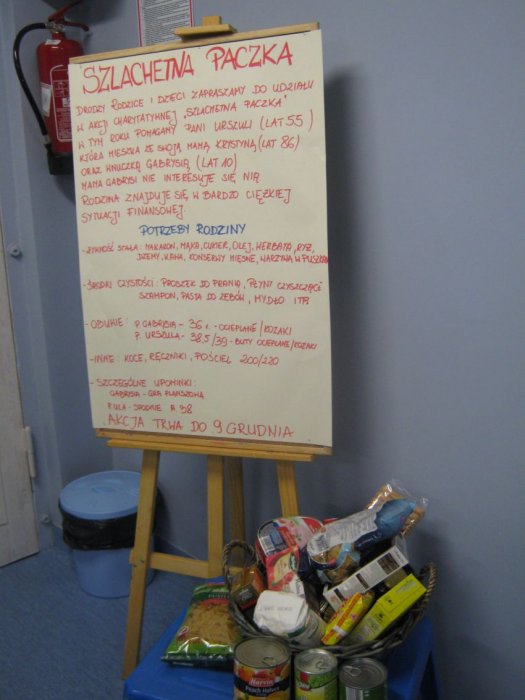 SZLACHETNA PACZKA
DRODZY RODZICE I DZIECI ZAPRASZAMY DO UDZIAŁU
W AKCJI CHARYTATYWNEJ „SZLACHETNA PACZKA"
W TYM ROKU POMAGAMY PANI URSZULI (LAT 55)
KTÓRA MIESZKA ZE SWOJĄ MAMĄ KRYSTYNĄ (LAT 86)
ORAZ WNUCZKĄ GABRYSIĄ (LAT 10)
MAMA GABRYSI NIE INTERESUJE SIĘ NIĄ
RODZINA ZNAJDUJE SIĘ W BARDZO CIĘŻKIEJ
SYTUACJI FINANSOWEJ.
POTRZEBY RODZINY
- ŻYWNOŚĆ STAŁA: MAKARON, MĄKA, CUKIER, OLEJ, HERBATA, RYŻ,
DŻEMY, KAWA, KONSERWY MIĘSNE, WARZYWA W PUSZKACH
- ŚRODKI CZYSTOŚCI: PROSZEK DO PRANIA, PŁYNY CZYSZCZĄCE
SZAMPON, PASTA DO ZĘBÓW, MYDŁO ITP.
- OBUWIE: P. GABRISIA - 36 r. - OCIEPLANE/KOZAKI
P. URSZULA - 38,5/39 - BUTY OCIEPLANE/KOZAKI
- INNE: KOCE, RĘCZNIKI, POŚCIEL 200/220
- SZCZEGÓLNE UPOMINKI:
GABRISIA - GRA PLANSZOWA
P. ULA - SPODNIE R 38
AKCJA TRWA DO 9 GRUDNIA
Peach Halves